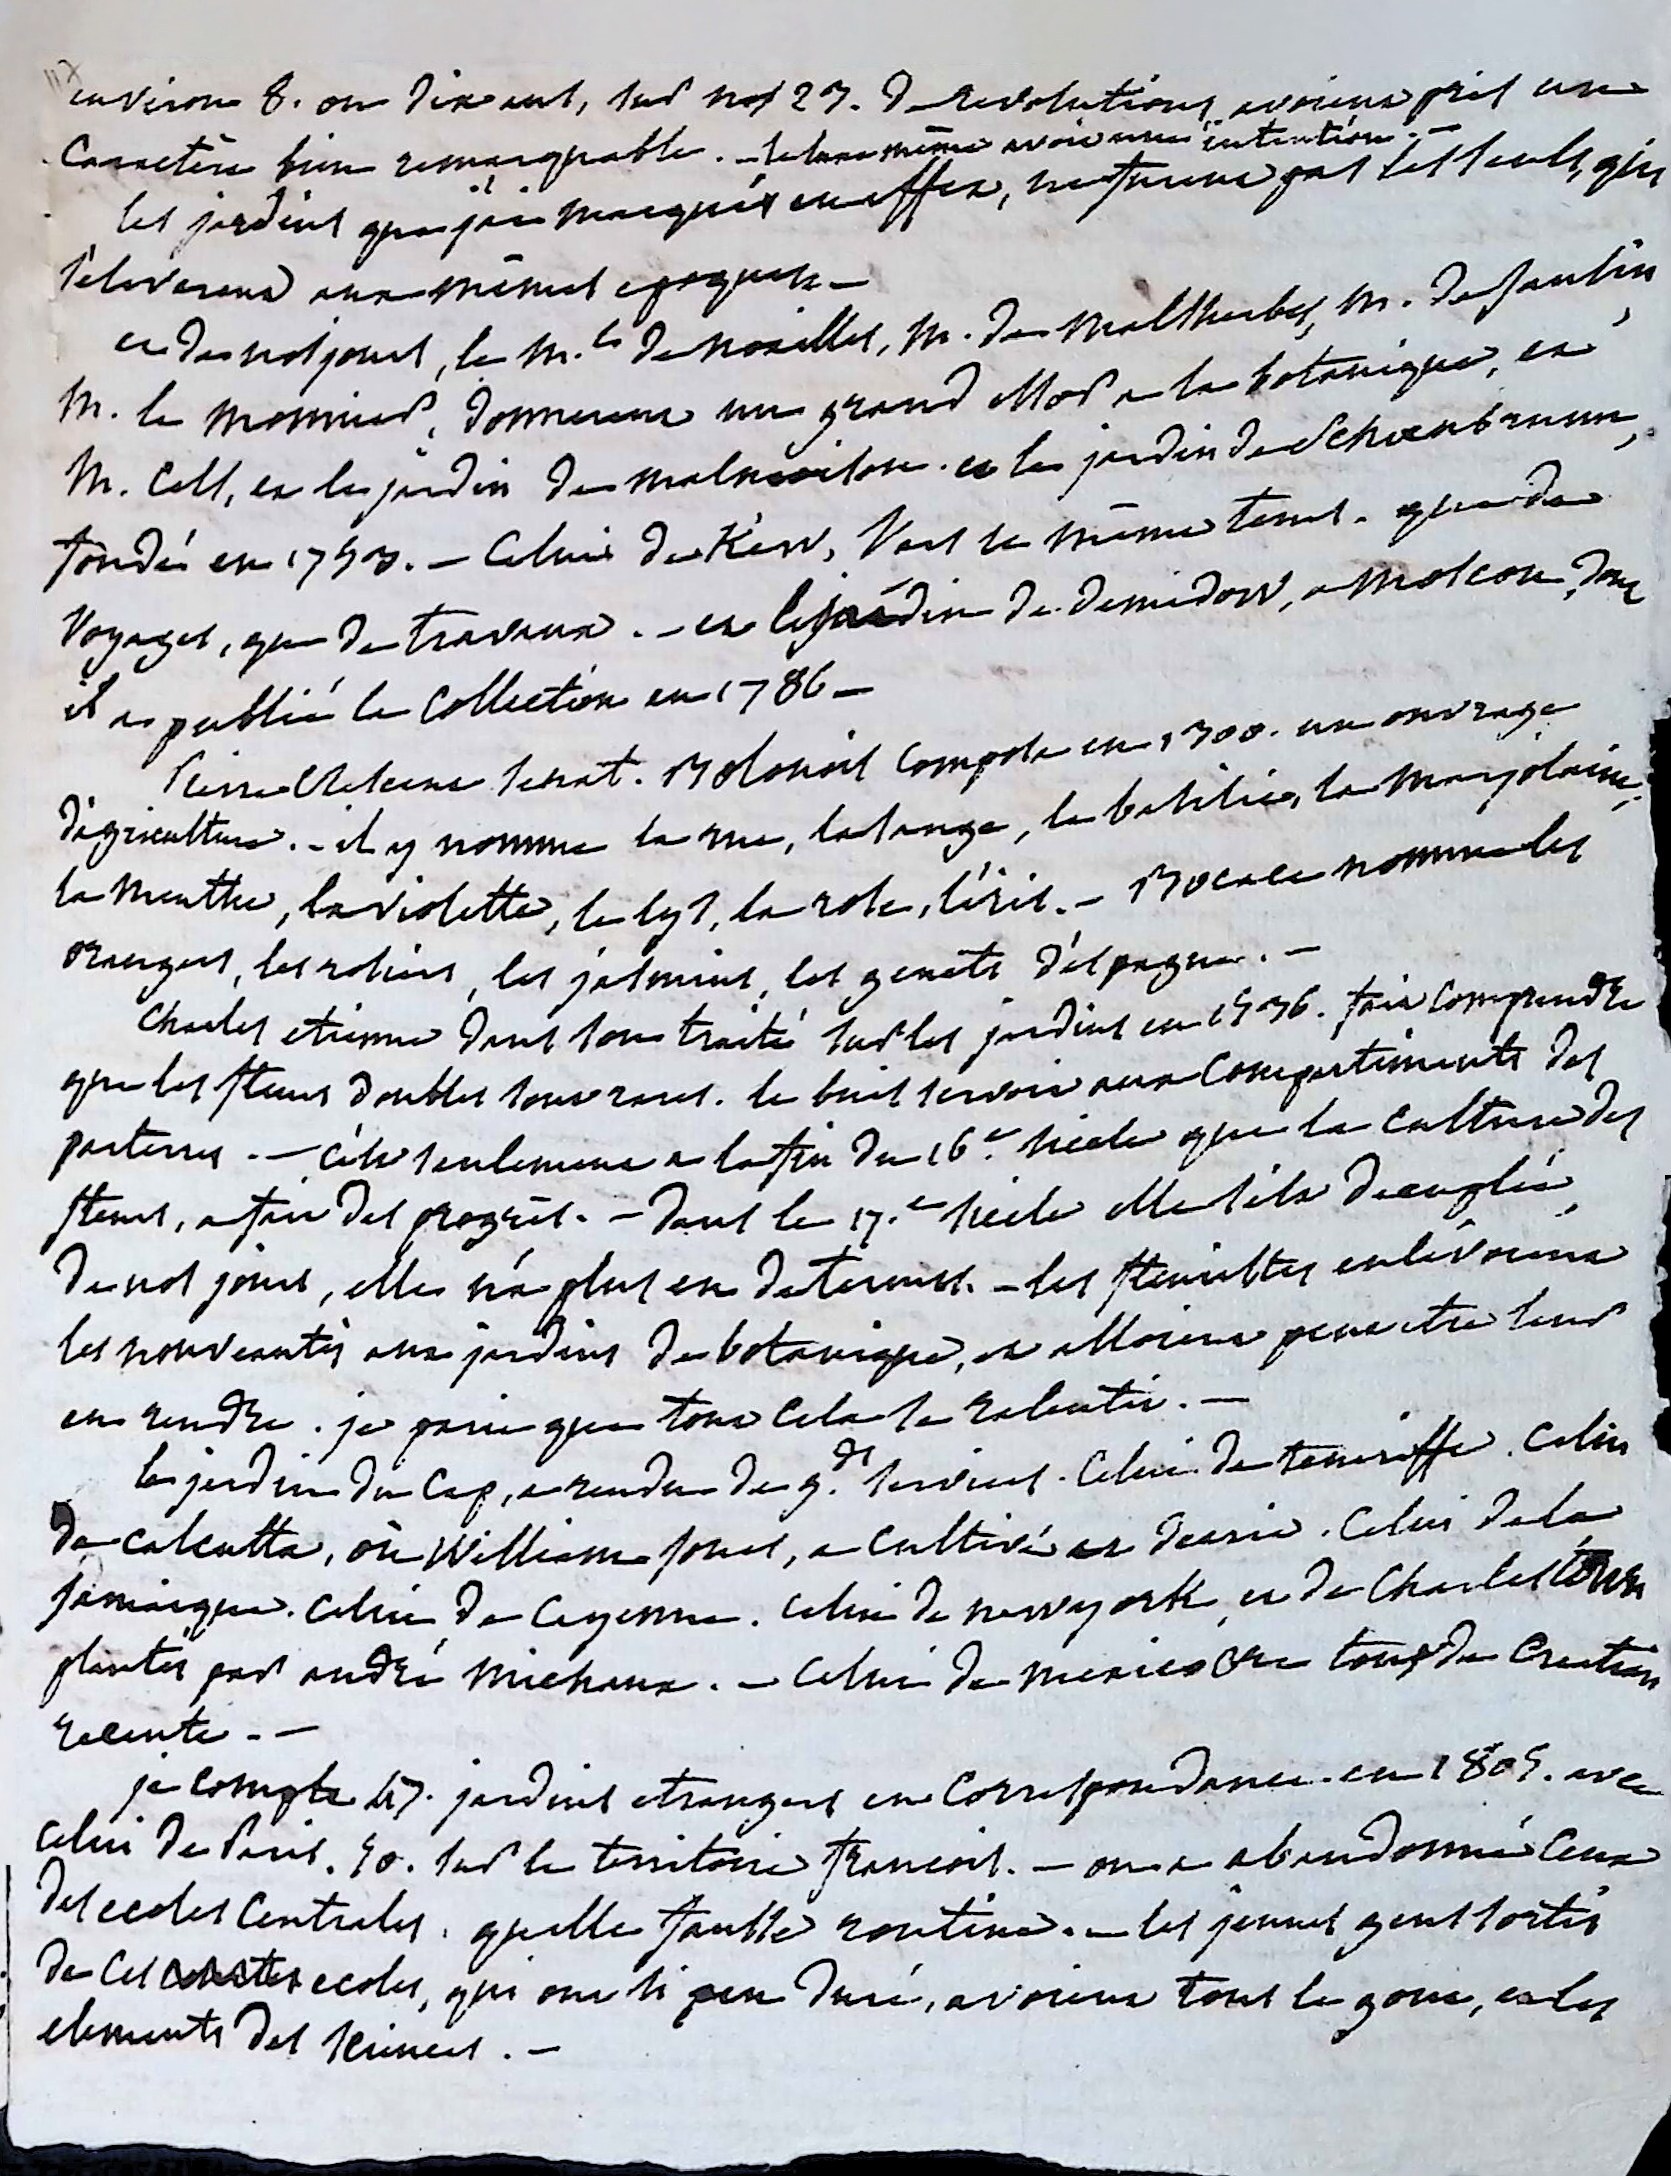 environ 8. ou dix ans, sur nos 27. de revolutions avoient pris un
Caractère bien remarquable. — le luxe même avoit une intention. —
les jardins que j'ai marqués en effet, ne furent pas les seuls, qui
s'eleverent aux mêmes epoques —
et de nos jours, le M.al de noailles, M. de Malsherbes, M. de Janssin,
M. le monnier, donnerent un grand essor a la botanique, et
M. Cels, et le jardin de malmaison. et le jardin de Schoenbrunn,
fondé en 1753. — Celui de Kew, Vers le même tems. que de
Voyages, que de travaux. — et le jardin de demidow, a Moscou, dont
il a publié la Collection en 1786 —
Pierre Crescent senat. Bolonois composa en 1300. un ouvrage
d'agriculture. — il y nomme la rue, la sauge, le basilic, la marjolaine,
la menthe, la violette, le lys, la rose, l'iris. — Bocace nomme les
orangers, les rosiers, les jasmins, les genets d'espagne. —
Charles etienne dans son traité sur les jardins en 1536. fait comprendre
que les fleurs doubles sont rares. le buis servoit aux Compartiments des
parterres. — c'est seulement a la fin du 16.e siecle que la culture des
fleurs, a fait des progrès. — dans le 17.e siècle elle s'est decuplée,
de nos jours, elle n'a plus eu de termes. — les fleuristes enlevoient
les nouveautés aux jardins de botanique, et alloient peut etre leur
en rendre. je parie que tout cela se ralentit. —
le jardin du Cap, a rendu de g.ds services. Celui de teneriffe. Celui
de calcutta, où William jones, a cultivé et decrit. Celui de la
jamaique. Celui de Cayenne. celui de newyork, et de Charlestown
plantés par andré Michaux. — Celui de mexico sont tous de Creation
recente. —
je compte 47. jardins etrangers en Correspondance en 1805. avec
celui de Paris. 50. sur le territoire françois. — on a abandonné Ceux
des ecoles Centrales. quelle fausse routine. — les jeunes gens sortis
de ces ecoles, qui ont si peu duré, avoient tous le gout, et les
elements des sciences. —